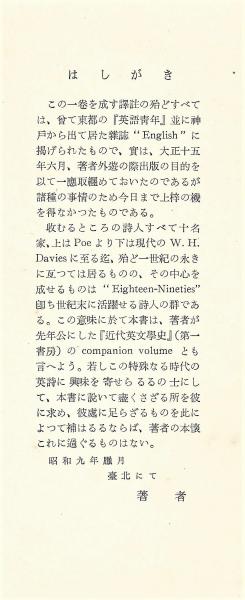 はしがき
この一卷を成す譯註の殆どすべて
は、曾て東都の『英語靑年』並に神
戸から出て居た雜誌“English”に
揭げられたもので、實は、大正十五
年六月、著者外遊の際出版の目的を
以て一應取纒めておいたのであるが
諸種の事情のため今日まで上梓の機
を得なかつたものである。
收むるところの詩人すべて十名
家、上は Poe より下は現代の W. H.
Davies に至る迄、殆ど一世紀の永き
に亙つては居るものの、その中心を
成せるものは“Eighteen-Nineties”
卽ち世紀末に活躍せる詩人の群であ
る。この意味に於て本書は、著者が
先年公にした『近代英文學史』(第一
書房) の companion volume とも
言へよう。若しこの特殊なる時代の
英詩に興味を寄せらるるの士にし
て、本書に說いて盡くさざる所を彼
に求め、彼處に足らざるものを此に
よつて補はるるならば、著者の本懷
これに過ぐるものはない。
昭和九年臘月
臺北にて
著者